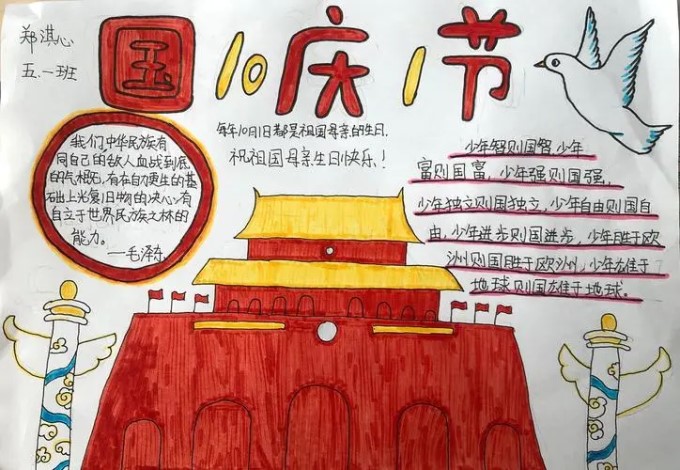 郑淇心
五.一班
国10庆1节
每年10月1日都是祖国母亲的生日,
祝祖国母亲生日快乐!
我们中华民族有
同自己的敌人血战到底
的气概,有在自力更生的基
础上光复旧物的决心,有
自立于世界民族之林的
能力。
——毛泽东
少年智则国智,少年
富则国富,少年强则国强,
少年独立则国独立,少年自由则国自
由,少年进步则国进步,少年胜于欧
洲则国胜于欧洲,少年雄于
地球则国雄于地球。